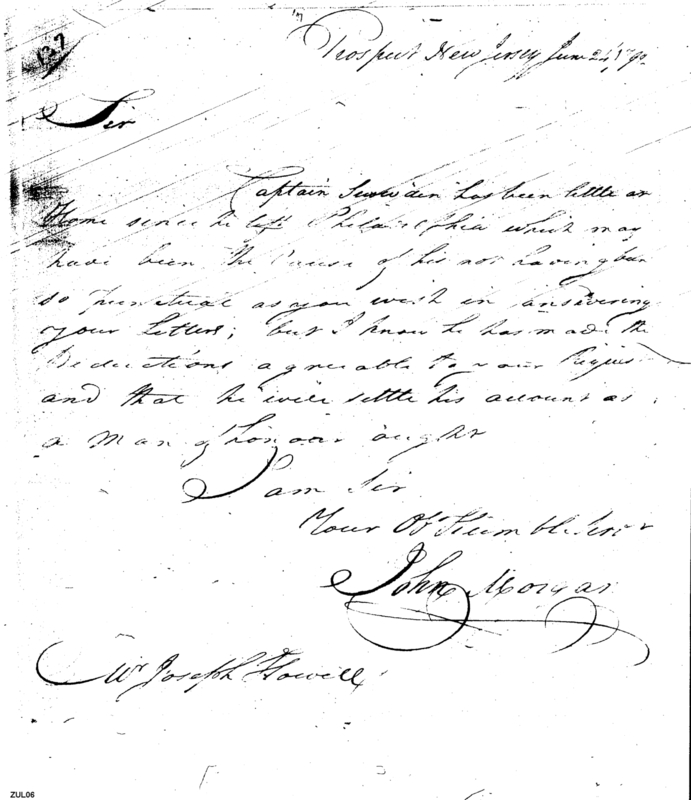 127
Prospect New Jersey June 24th 1790
Sir
Captain Snowden has been little at
Home since he left Philadelphia which may
have been the Cause of his not having been
so punctual as you wish in answering
your Letters; but I know he has made the
Deductions agreeable to your Request
and that he will settle his account as
a Man of honour ought
I am Sir
Your Obt Humble Servt
John Morgan
Mr Joseph Howell
ZUL06